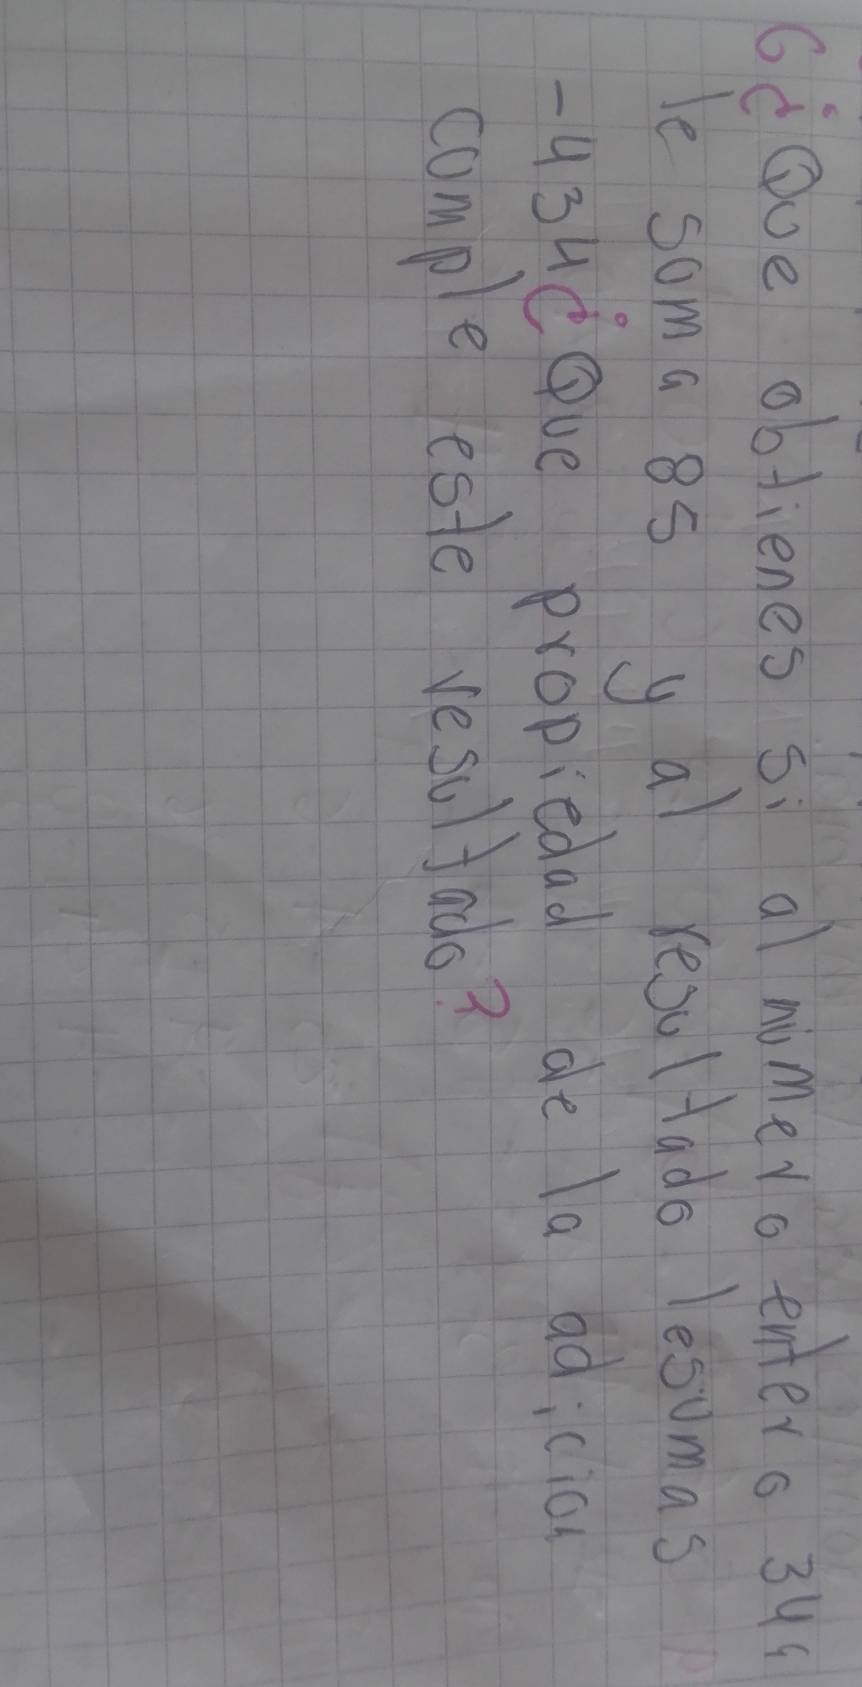 6 ¿Que obtienes si al numero entero 344
le soma 85 y al resultado lesumas
-434 ¿Que propiedad de la adicion
comple este resultado?